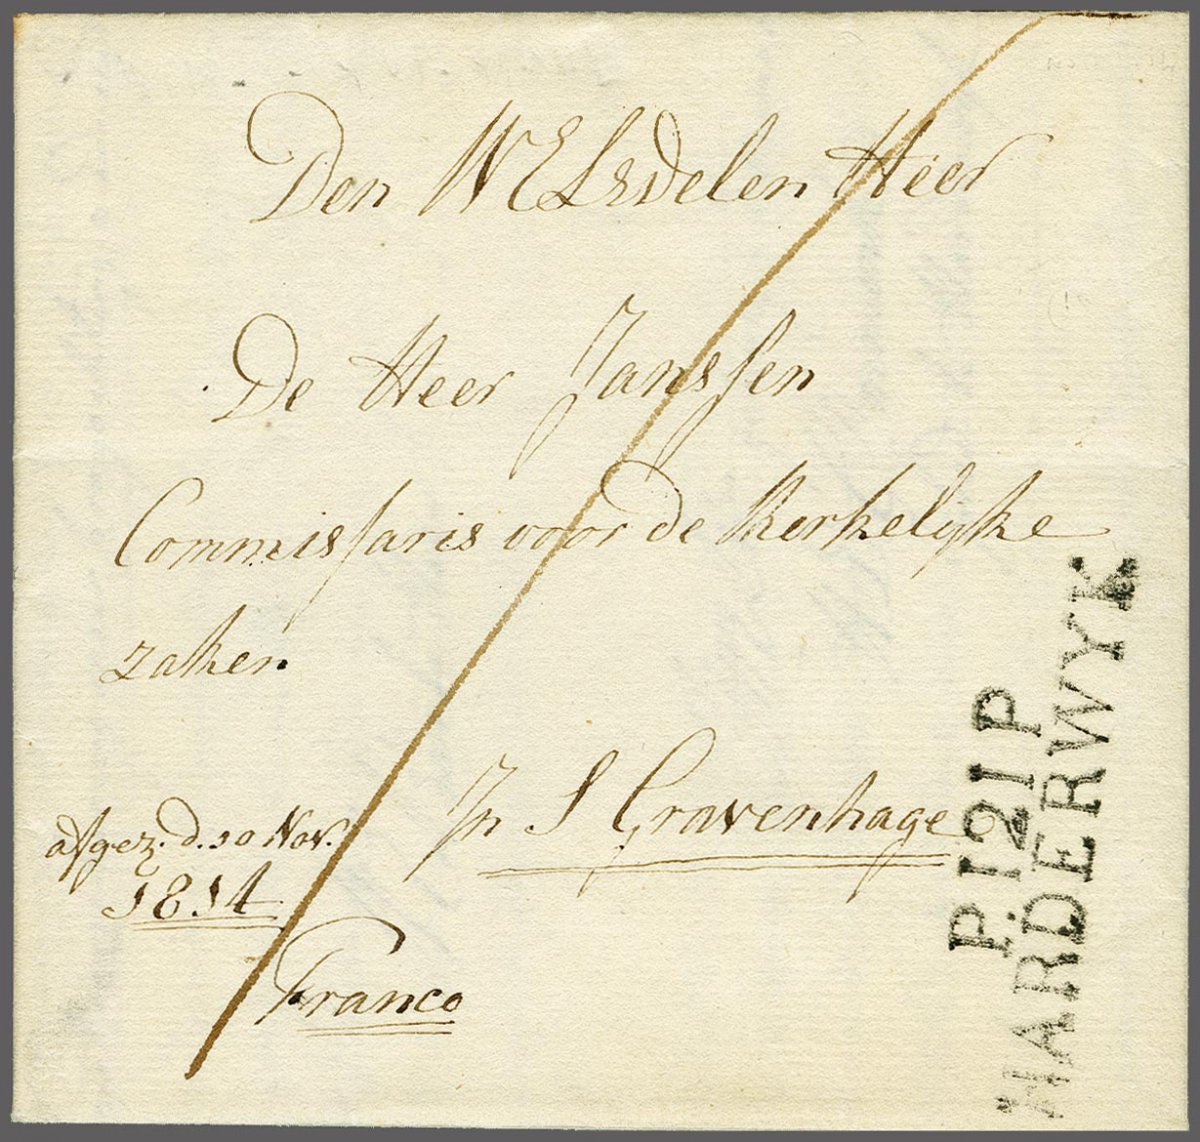 Den WELEdelen Heer
De Heer Janssen
Commissaris voor de Kerkelijke
zaken
In S Gravenhage
afgez. d. 10 Nov.
1814
Franco
P.121.P
HARDERWYK